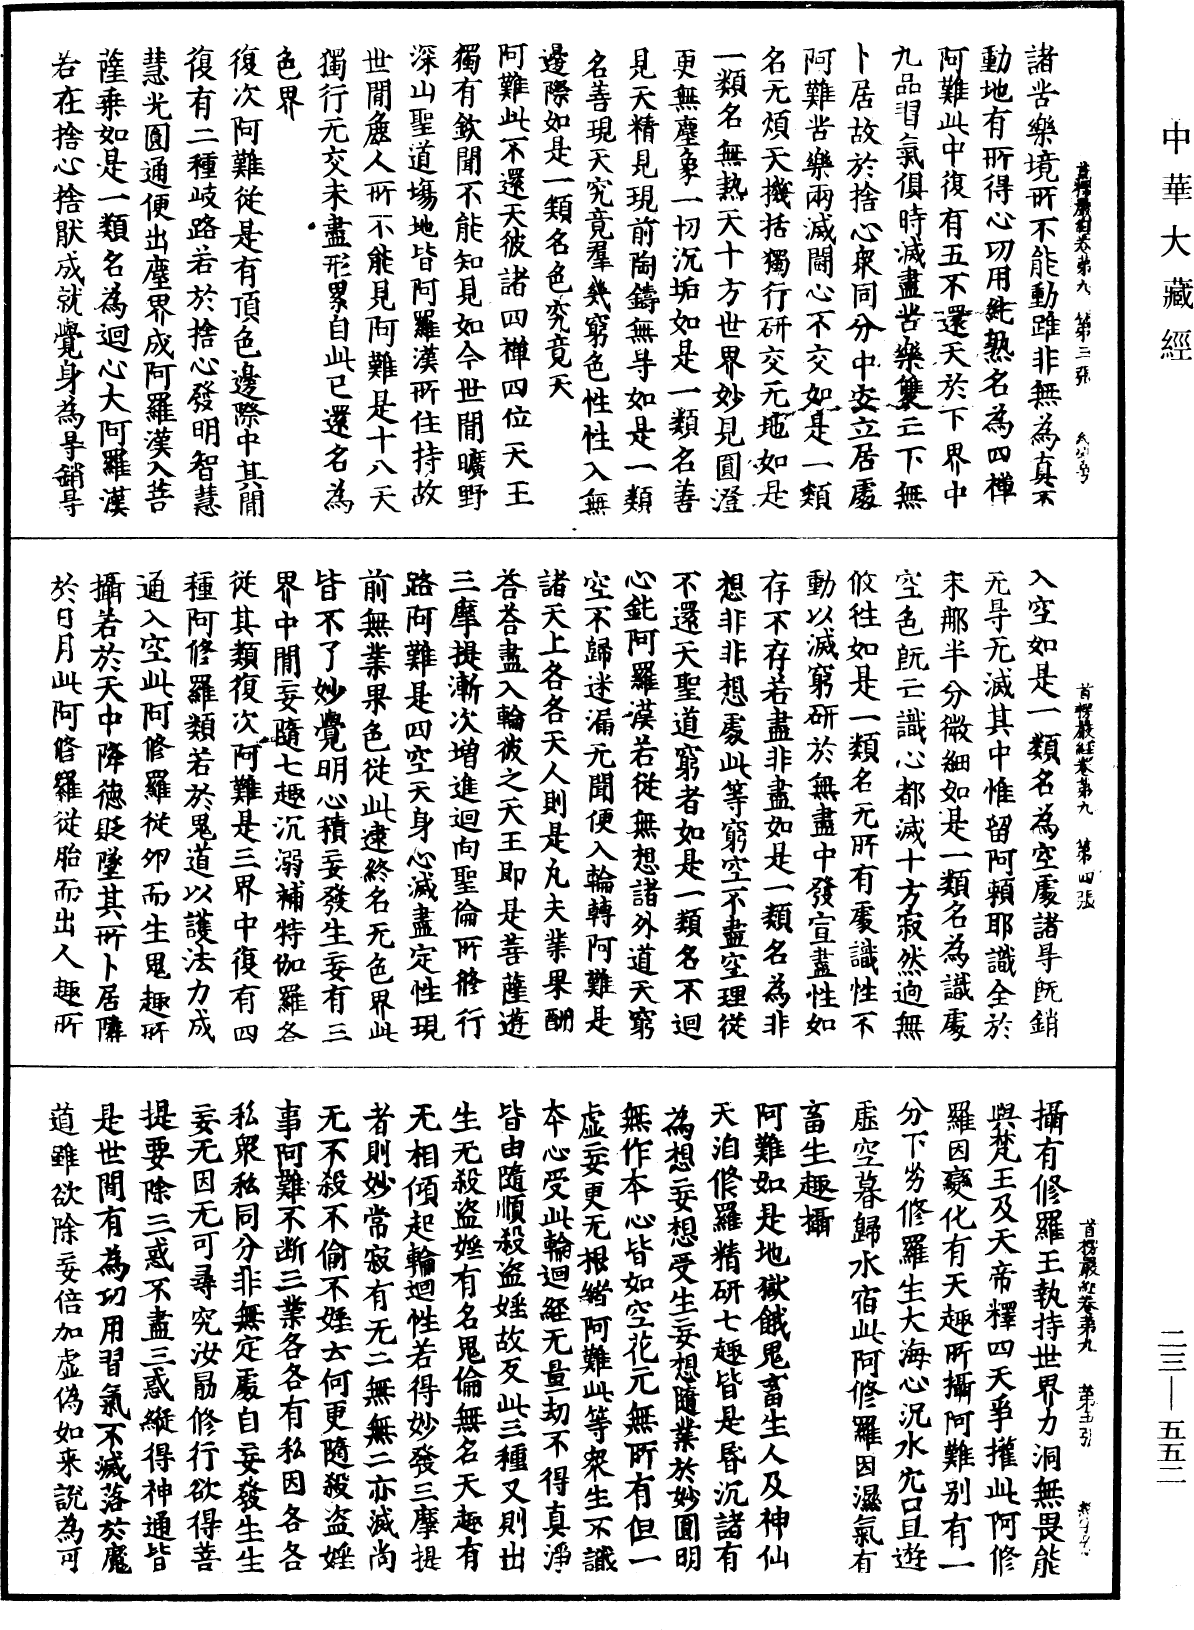 中華大藏經
諸苦樂境所不能動雖非無為真不
動地有所得心功用純熟名為四禪
阿難此中復有五不還天於下界中
九品習氣俱時滅盡苦樂雙亡下無
卜居故於捨心衆同分中安立居處
阿難苦樂兩滅鬪心不交如是一類
名无煩天機括獨行研交无地如是
一類名無熱天十方世界妙見圓澄
更無塵象一切沉垢如是一類名善
見天精見現前陶鑄無㝵如是一類
名善現天究竟羣幾窮色性性入無
邊際如是一類名色究竟天
阿難此不還天彼諸四禪四位天王
獨有欽聞不能知見如今世間曠野
深山聖道場地皆阿羅漢所住持故
世間麁人所不能見阿難是十八天
獨行无交未盡形累自此已還名為
色界
復次阿難從是有頂色邊際中其間
復有二種歧路若於捨心發明智慧
慧光圓通便出塵界成阿羅漢入菩
薩乘如是一類名為迴心大阿羅漢
若在捨心捨猒成就覺身為㝵銷㝵
首楞嚴經卷第九 第三張
入空如是一類名為空處諸㝵旣銷
无㝵无滅其中惟留阿賴耶識全於
末那半分微細如是一類名為識處
空色旣亡識心都滅十方寂然逈無
攸往如是一類名无所有處識性不
動以滅窮研於無盡中發宣盡性如
存不存若盡非盡如是一類名為非
想非非想處此等窮空不盡空理從
不還天聖道窮者如是一類名不迴
心鈍阿羅漢若從無想諸外道天窮
空不歸迷漏无聞便入輪轉阿難是
諸天上各各天人則是凡夫業果酬
荅荅盡入輪彼之天王即是菩薩遊
三摩提漸次增進迴向聖倫所修行
路阿難是四空天身心滅盡定性現
前無業果色從此逮終名无色界此
皆不了妙覺明心積妄發生妄有三
界中間妄隨七趣沉溺補特伽羅各
從其類復次阿難是三界中復有四
種阿修羅類若於鬼道以護法力成
通入空此阿修羅從卵而生鬼趣所
攝若於天中降德貶墜其所卜居隣
於日月此阿修羅從胎而出人趣所
首楞嚴經卷第九 第四張
攝有修羅王執持世界力洞無畏能
與梵王及天帝釋四天爭權此阿修
羅因變化有天趣所攝阿難別有一
分下劣修羅生大海心沉水穴口旦遊
虛空暮歸水宿此阿修羅因濕氣有
畜生趣攝
阿難如是地獄餓鬼畜生人及神仙
天洎修羅精研七趣皆是昏沉諸有
為想妄想受生妄想隨業於妙圓明
無作本心皆如空花元無所有但一
虛妄更无根緒阿難此等衆生不識
本心受此輪迴經无量劫不得真淨
皆由隨順殺盜婬故反此三種又則出
生无殺盜婬有名鬼倫無名天趣有
无相傾起輪迴性若得妙發三摩提
者則妙常寂有无二無無二亦滅尚
无不殺不偷不婬云何更隨殺盜婬
事阿難不断三業各各有私因各各
私衆私同分非無定處自妄發生生
妄无因无可尋究汝勗修行欲得菩
提要除三惑不盡三惑縱得神通皆
是世間有為功用習氣不滅落於魔
道雖欲除妄倍加虛偽如来說為可
首楞嚴經卷第九 第五張
二三—五五二